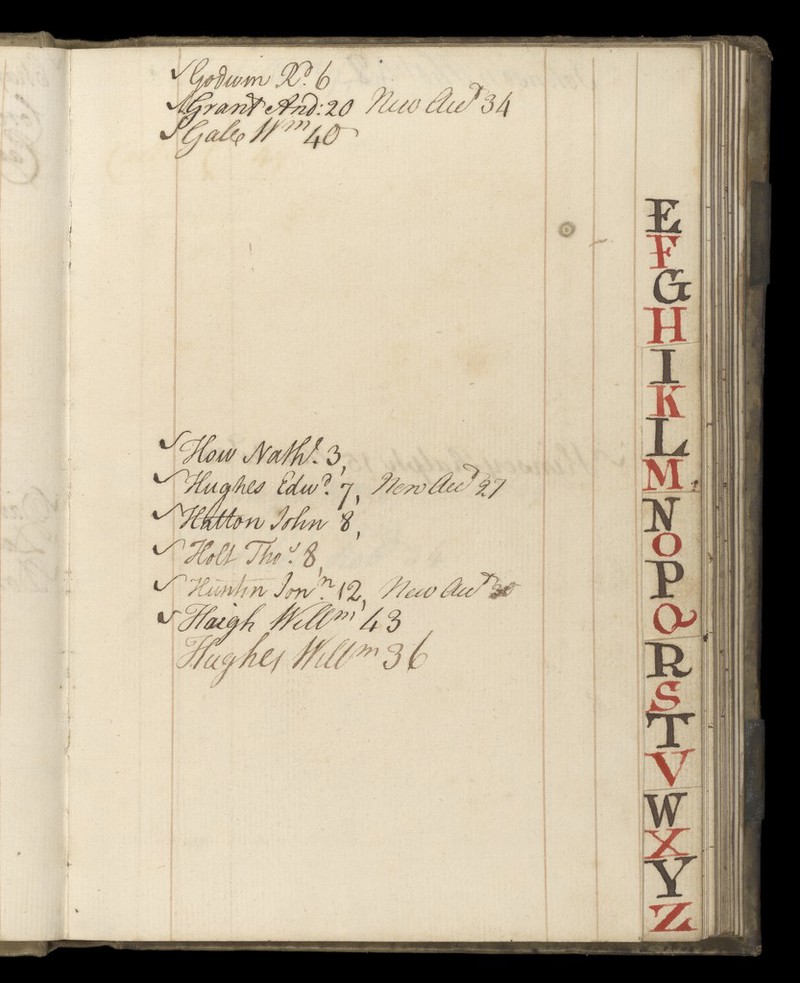 Godwin Rd. 6
Grant And: 20 New Acct 34
Gale Wm 40
How Nathl. 3,
Hughes Edwd. 7, New Acct 27
Hatton John 8,
Holt Thos. 8,
Huntin Jonn. 12, New Acct 30
Haigh Willm 43
Hughes Willm 36
E
F
G
H
I
K
L
M
N
O
P
Q
R
S
T
V
W
X
Y
Z